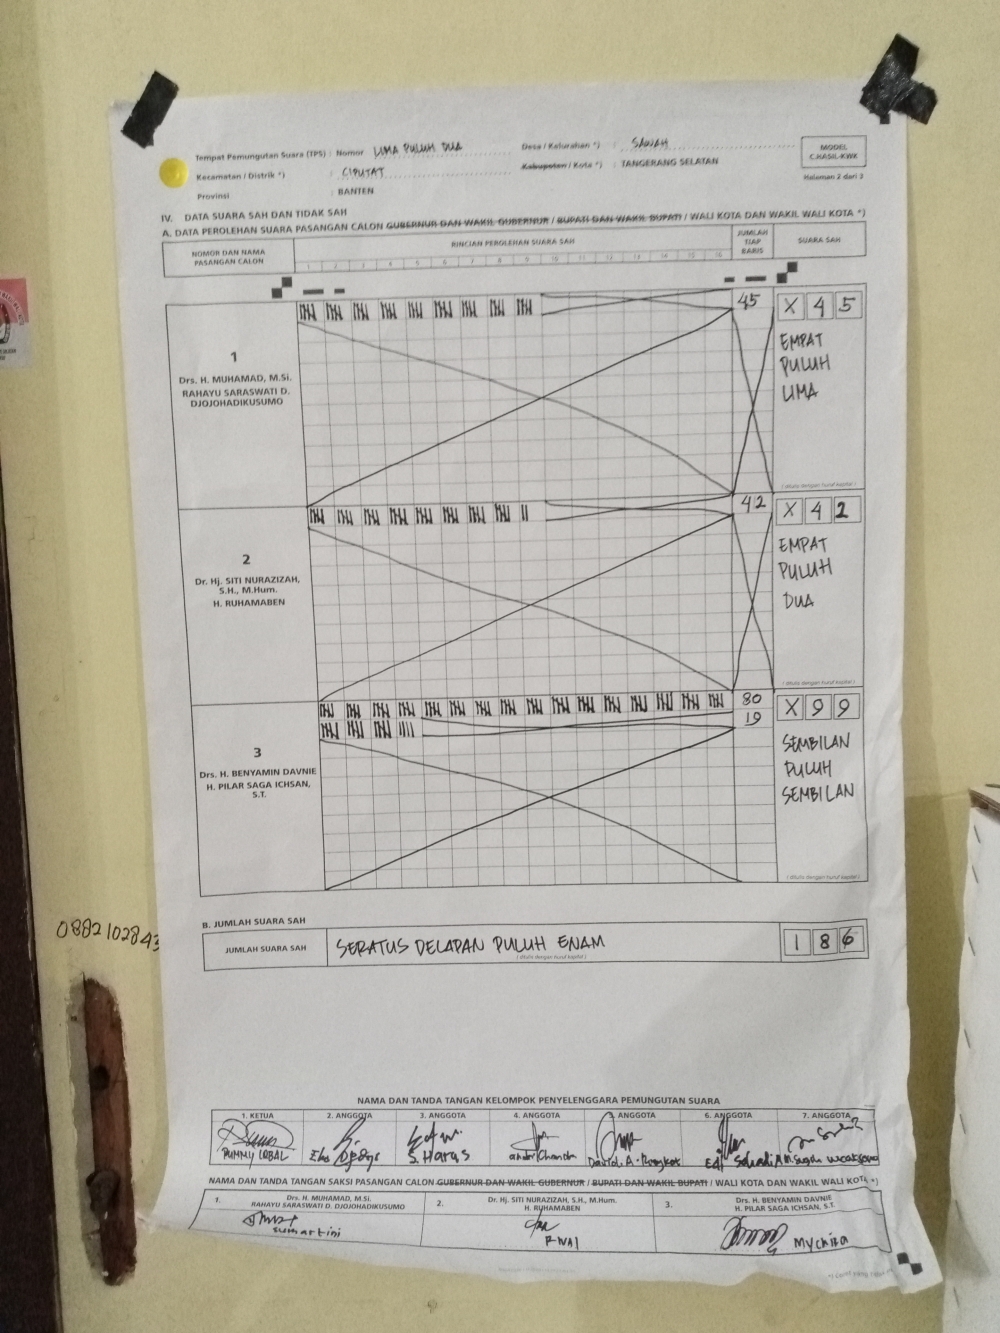 Tempat Pemungutan Suara (TPS) : Nomor LIMA PULUH DUA
Desa / Kelurahan *) : SAWAH
MODEL
C.HASIL-KWK
Kecamatan / Distrik *) : CIPUTAT
Kabupaten / Kota *) : TANGERANG SELATAN
Halaman 2 dari 2
Provinsi : BANTEN
IV. DATA SUARA SAH DAN TIDAK SAH
A. DATA PEROLEHAN SUARA PASANGAN CALON GUBERNUR DAN WAKIL GUBERNUR / BUPATI DAN WAKIL BUPATI / WALI KOTA DAN WAKIL WALI KOTA *)
NOMOR DAN NAMA
PASANGAN CALON
RINCIAN PEROLEHAN SUARA SAH
1 2 3 4 5 6 7 8 9 10 11 12 13 14 15 16
JUMLAH
TIAP
BARIS
SUARA SAH
1
Drs. H. MUHAMAD, M.Si.
RAHAYU SARASWATI D.
DJOJOHADIKUSUMO
45
X 4 5
EMPAT
PULUH
LIMA
( ditulis dengan huruf kapital )
2
Dr. Hj. SITI NURAZIZAH,
S.H., M.Hum.
H. RUHAMABEN
42
X 4 2
EMPAT
PULUH
DUA
( ditulis dengan huruf kapital )
3
Drs. H. BENYAMIN DAVNIE
H. PILAR SAGA ICHSAN,
S.T.
80
19
X 9 9
SEMBILAN
PULUH
SEMBILAN
( ditulis dengan huruf kapital )
B. JUMLAH SUARA SAH
JUMLAH SUARA SAH
SERATUS DELAPAN PULUH ENAM
( ditulis dengan huruf kapital )
1 8 6
0882102843
NAMA DAN TANDA TANGAN KELOMPOK PENYELENGGARA PEMUNGUTAN SUARA
1. KETUA 2. ANGGOTA 3. ANGGOTA 4. ANGGOTA 5. ANGGOTA 6. ANGGOTA 7. ANGGOTA
S. Haras
Andri Chanda
NAMA DAN TANDA TANGAN SAKSI PASANGAN CALON GUBERNUR DAN WAKIL GUBERNUR / BUPATI DAN WAKIL BUPATI / WALI KOTA DAN WAKIL WALI KOTA *)
1. Drs. H. MUHAMAD, M.Si.
RAHAYU SARASWATI D. DJOJOHADIKUSUMO
sumartini
2. Dr. Hj. SITI NURAZIZAH, S.H., M.Hum.
H. RUHAMABEN
3. Drs. H. BENYAMIN DAVNIE
H. PILAR SAGA ICHSAN, S.T.